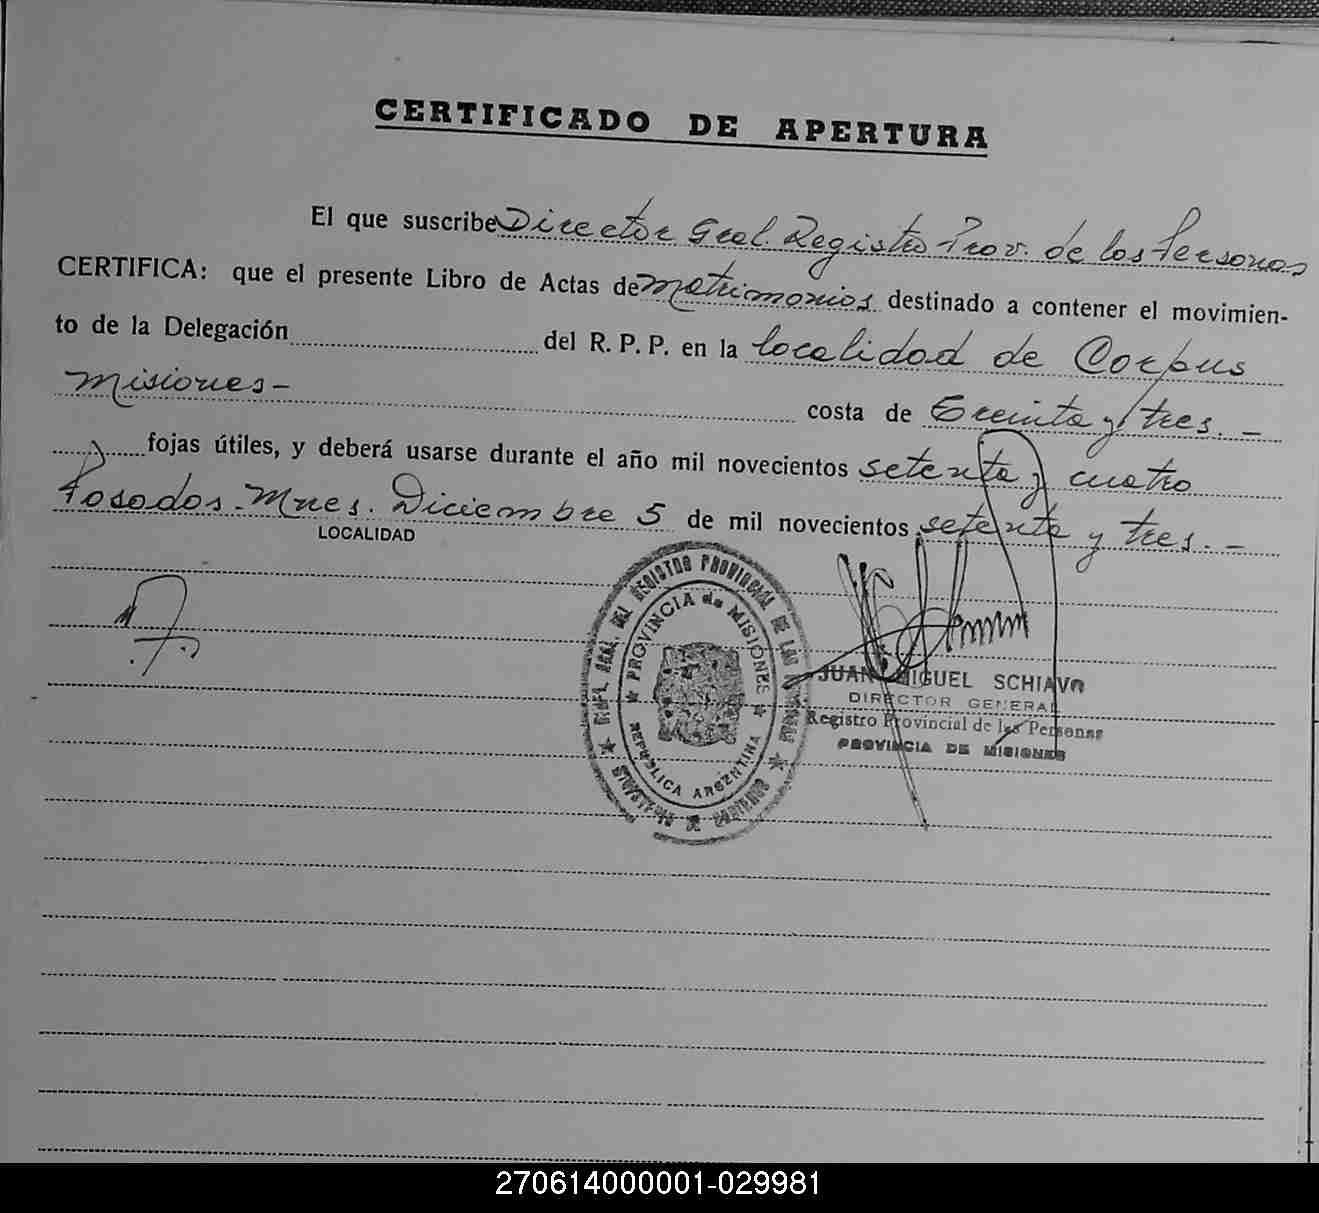 CERTIFICADO DE APERTURA
El que suscribe Director Gral. Registro Prov. de los Personas
CERTIFICA: que el presente Libro de Actas de Matrimonios destinado a contener el movimien-
to de la Delegación del R. P. P. en la localidad de Corpus
Misiones-
costa de treinta y tres. -
fojas útiles, y deberá usarse durante el año mil novecientos setenta y cuatro
Posadas - Mnes. Diciembre 5 de mil novecientos setenta y tres. -
LOCALIDAD
REGISTRO PROVINCIAL DE LAS PERSONAS
PROVINCIA de MISIONES
REPUBLICA ARGENTINA
JUAN MIGUEL SCHIAVO
DIRECTOR GENERAL
Registro Provincial de las Personas
PROVINCIA DE MISIONES
270614000001-029981